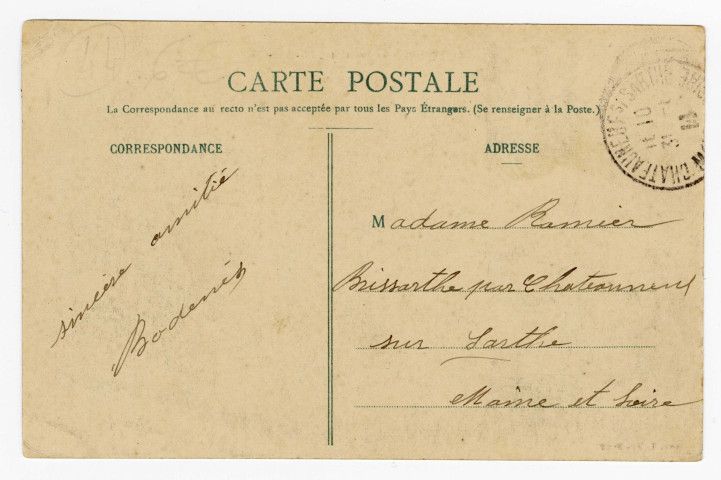 CARTE POSTALE
La Correspondance au recto n'est pas acceptée par tous les Pays Étrangers. (Se renseigner à la Poste.)
CORRESPONDANCE
ADRESSE
sincère amitié
Bodenés
Madame Ramier
Brissarthe par Chateauneuf
sur Sarthe
Maine et Loire
CHATEAUNEUF